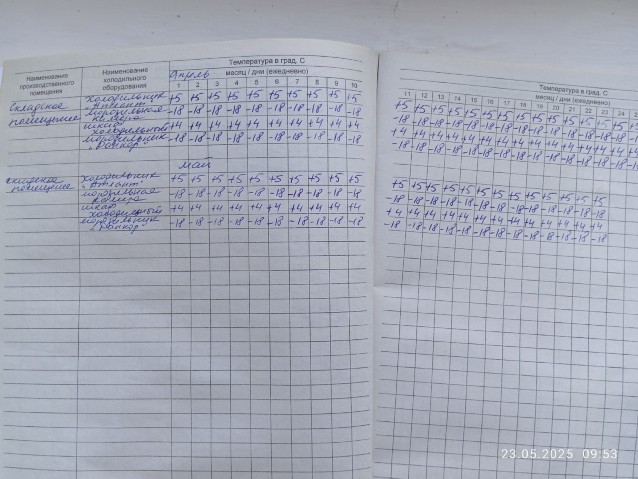 Температура в град. С
Наименование производственного помещения
Наименование холодильного оборудования
Апрель месяц / дни (ежедневно)
1 2 3 4 5 6 7 8 9 10
Складское холодильник +5 +5 +5 +5 +5 +5 +5 +5 +5 +5
Атлант
помещение морозильная -18 -18 -18 -18 -18 -18 -18 -18 -18 -18
шкаф +4 +4 +4 +4 +4 +4 +4 +4 +4 +4
холодильный
морозильник -18 -18 -18 -18 -18 -18 -18 -18 -18 -18
Май
холодильник +5 +5 +5 +5 +5 +5 +5 +5 +5 +5
помещение "Атлант"
морозильная -18 -18 -18 -18 -18 -18 -18 -18 -18 -18
шкаф +4 +4 +4 +4 +4 +4 +4 +4 +4 +4
холодильный
морозильник -18 -18 -18 -18 -18 -18 -18 -18 -18 -18
Температура в град. С
месяц / дни (ежедневно)
11 12 13 14 15 16 17 18 19 20 21 22 23 24
+5 +5 +5 +5 +5 +5 +5 +5 +5 +5 +5 +5 +5
-18 -18 -18 -18 -18 -18 -18 -18 -18 -18 -18 -18 -18
+4 +4 +4 +4 +4 +4 +4 +4 +4 +4 +4 +4 +4
-18 -18 -18 -18 -18 -18 -18 -18 -18 -18 -18 -18 -18
+5 +5 +5 +5 +5 +5 +5 +5 +5 +5 +5 +5 +5
-18 -18 -18 -18 -18 -18 -18 -18 -18 -18 -18 -18 -18
+4 +4 +4 +4 +4 +4 +4 +4 +4 +4 +4 +4 +4
-18 -18 -18 -18 -18 -18 -18 -18 -18 -18 -18 -18 -18
23.05.2025 09:53